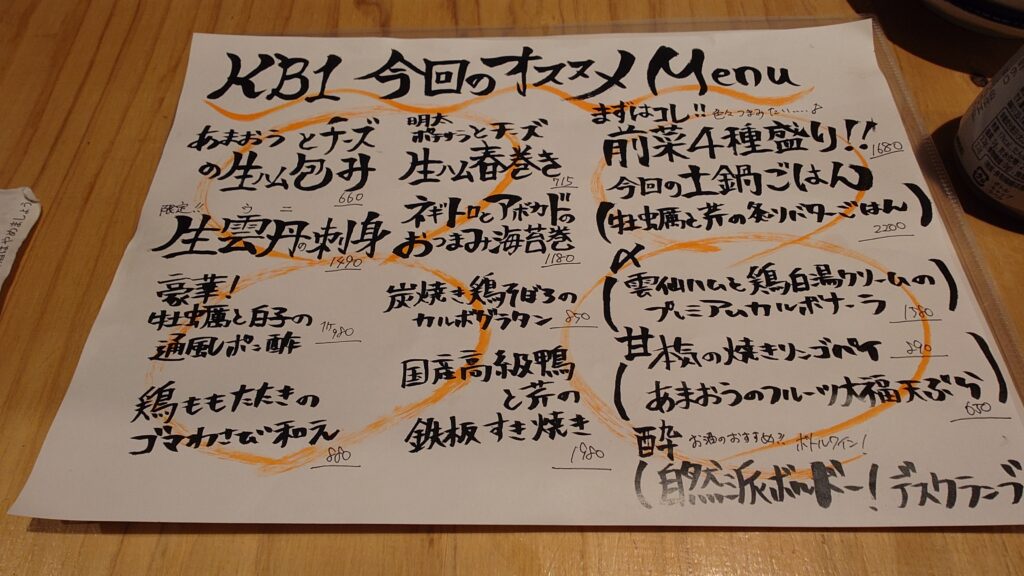 KB1 今回のオススメ Menu
あまおうとチーズ
の生ハム包み
660
限定!!
ウニ
生雲丹の刺身
1490
豪華!
牡蠣と白子の
痛風ポン酢
980
鶏ももたたきの
ゴマわさび和え
880
明太
ポテサラとチーズ
生ハム春巻き
715
ネギトロとアボカドの
おつまみ海苔巻
1180
炭焼き鶏そぼろの
カルボグラタン
850
国産高級鴨
と芹の
鉄板すき焼き
1980
まずはコレ!! 色々つまみたい……♪
前菜4種盛り!!
1680
今回の土鍋ごはん
(牡蠣と芹の炙りバターごはん)
2200
〆
(雲仙ハムと鶏白湯クリームの
プレミアムカルボナーラ)
1380
甘
(本気の焼きリンゴパイ
890
あまおうのフルーツ大福天ぷら)
650
酔 お酒のおすすめ?? ボトルワイン!
(自然派ボルドー! デスクランブ